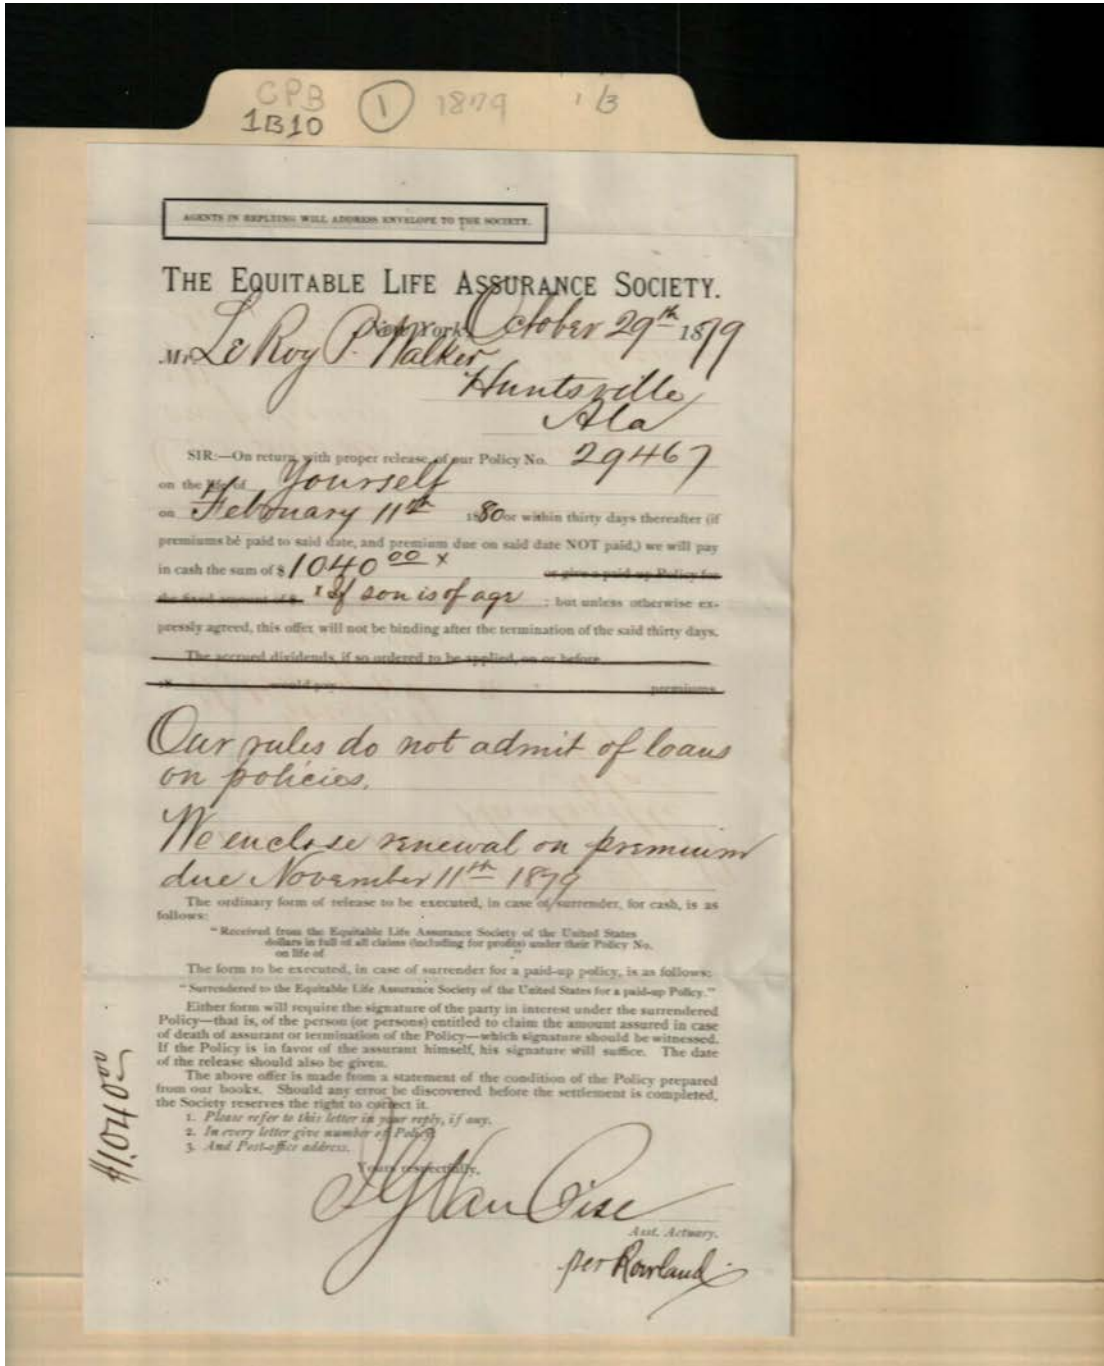 CPB 1 1879 1/3
1B10
AGENTS IN REPLYING WILL ADDRESS ENVELOPE TO THE SOCIETY.
THE EQUITABLE LIFE ASSURANCE SOCIETY.
New York, October 29th 1879
Mr. LeRoy P. Walker
Huntsville
Ala
SIR:—On return, with proper release, of our Policy No. 29467
on the life of Yourself
on February 11th 1880 or within thirty days thereafter (if
premiums be paid to said date, and premium due on said date NOT paid,) we will pay
in cash the sum of $ 1040 00 x or give a paid-up Policy for
the fixed amount of $ x If son is of age ; but unless otherwise ex-
pressly agreed, this offer will not be binding after the termination of the said thirty days.
The accrued dividends, if so ordered to be applied, on or before
would pay premiums
Our rules do not admit of loans
on policies.
We enclose renewal on premium
due November 11th 1879
The ordinary form of release to be executed, in case of surrender, for cash, is as
follows:
"Received from the Equitable Life Assurance Society of the United States
dollars in full of all claims (including for profits) under their Policy No.
on life of "
The form to be executed, in case of surrender for a paid-up policy, is as follows:
"Surrendered to the Equitable Life Assurance Society of the United States for a paid-up Policy."
Either form will require the signature of the party in interest under the surrendered
Policy—that is, of the person (or persons) entitled to claim the amount assured in case
of death of assurant or termination of the Policy—which signature should be witnessed.
If the Policy is in favor of the assurant himself, his signature will suffice. The date
of the release should also be given.
The above offer is made from a statement of the condition of the Policy prepared
from our books. Should any error be discovered before the settlement is completed,
the Society reserves the right to correct it.
1. Please refer to this letter in your reply, if any.
2. In every letter give number of Policy.
3. And Post-office address.
Yours respectfully,
J G Van Cise
Asst. Actuary.
per Rowland
$1,040 00